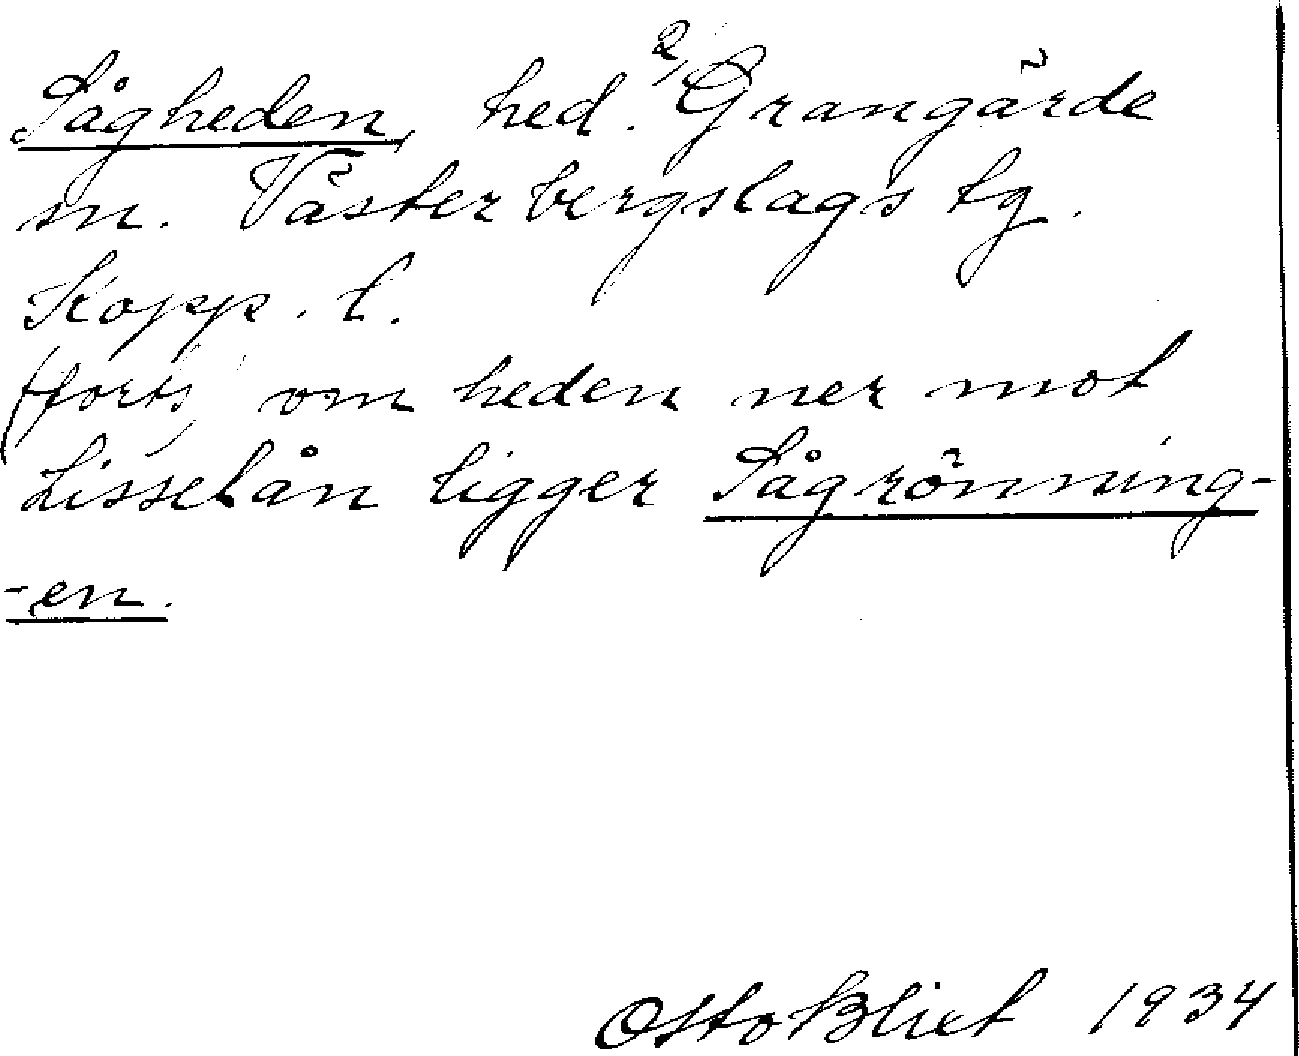 Sågheden, hed. 2/ Grangärde
sn. Västerbergslags tg.
Kopp. l.
(forts) om heden ner mot
Lisselån ligger Sågrönning-
-en.
Otto Blixt 1934